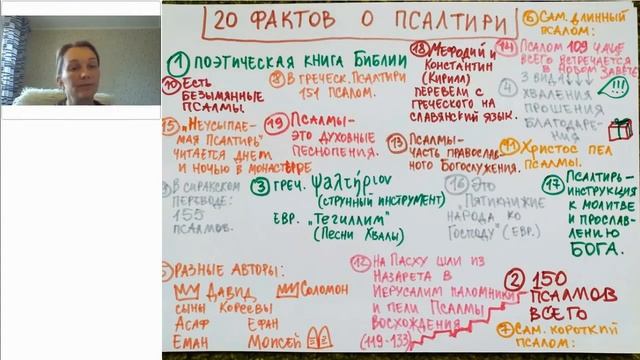 20 ФАКТОВ О ПСАЛТИРИ
6 САМ. ДЛИННЫЙ
ПСАЛОМ:
1 ПОЭТИЧЕСКАЯ КНИГА БИБЛИИ
10 ЕСТЬ
БЕЗЫМЯННЫЕ
ПСАЛМЫ.
8 В ГРЕЧЕСК. ПСАЛТИРИ
151 ПСАЛОМ.
18 МЕФОДИЙ И
КОНСТАНТИН
(КИРИЛЛ)
ПЕРЕВЕЛИ С
ГРЕЧЕСКОГО НА
СЛАВЯНСКИЙ ЯЗЫК.
14 ПСАЛОМ 109 ЧАЩЕ
ВСЕГО ВСТРЕЧАЕТСЯ
В НОВОМ ЗАВЕТЕ
4 3 ВИДА
ХВАЛЕНИЯ
ПРОШЕНИЯ
БЛАГОДАРЕ-
НИЯ
!!!
15 „НЕУСЫПАЕ-
МАЯ ПСАЛТИРЬ"
ЧИТАЕТСЯ ДНЕМ
И НОЧЬЮ В МОНАСТЫРЕ
19 ПСАЛМЫ-
ЭТО ДУХОВНЫЕ
ПЕСНОПЕНИЯ.
13 ПСАЛМЫ-
ЧАСТЬ ПРАВОСЛАВНО-
ГО БОГОСЛУЖЕНИЯ.
11 ХРИСТОС ПЕЛ
ПСАЛМЫ.
В СИРИЙСКОМ
ПЕРЕВОДЕ:
155
ПСАЛМОВ.
3 ГРЕЧ. ψαλτήριον
(СТРУННЫЙ ИНСТРУМЕНТ)
ЕВР. „ТЕГИЛЛИМ"
(ПЕСНИ ХВАЛЫ)
16 ЭТО
"ПЯТИКНИЖИЕ
НАРОДА КО
ГОСПОДУ" (ЕВР.)
17 ПСАЛТИРЬ-
ИНСТРУКЦИЯ
К МОЛИТВЕ
И ПРОСЛАВ-
ЛЕНИЮ
БОГА.
5 РАЗНЫЕ АВТОРЫ:
ДАВИД СОЛОМОН
СЫНЫ КОРЕЕВЫ
АСАФ ЕФАН
ЕМАН МОИСЕЙ
12 НА ПАСХУ ШЛИ ИЗ
НАЗАРЕТА В
ИЕРУСАЛИМ ПАЛОМНИКИ
И ПЕЛИ ПСАЛМЫ
ВОСХОЖДЕНИЯ
(119-133)
2 150
ПСАЛМОВ
ВСЕГО
7 САМ. КОРОТКИЙ
ПСАЛОМ: